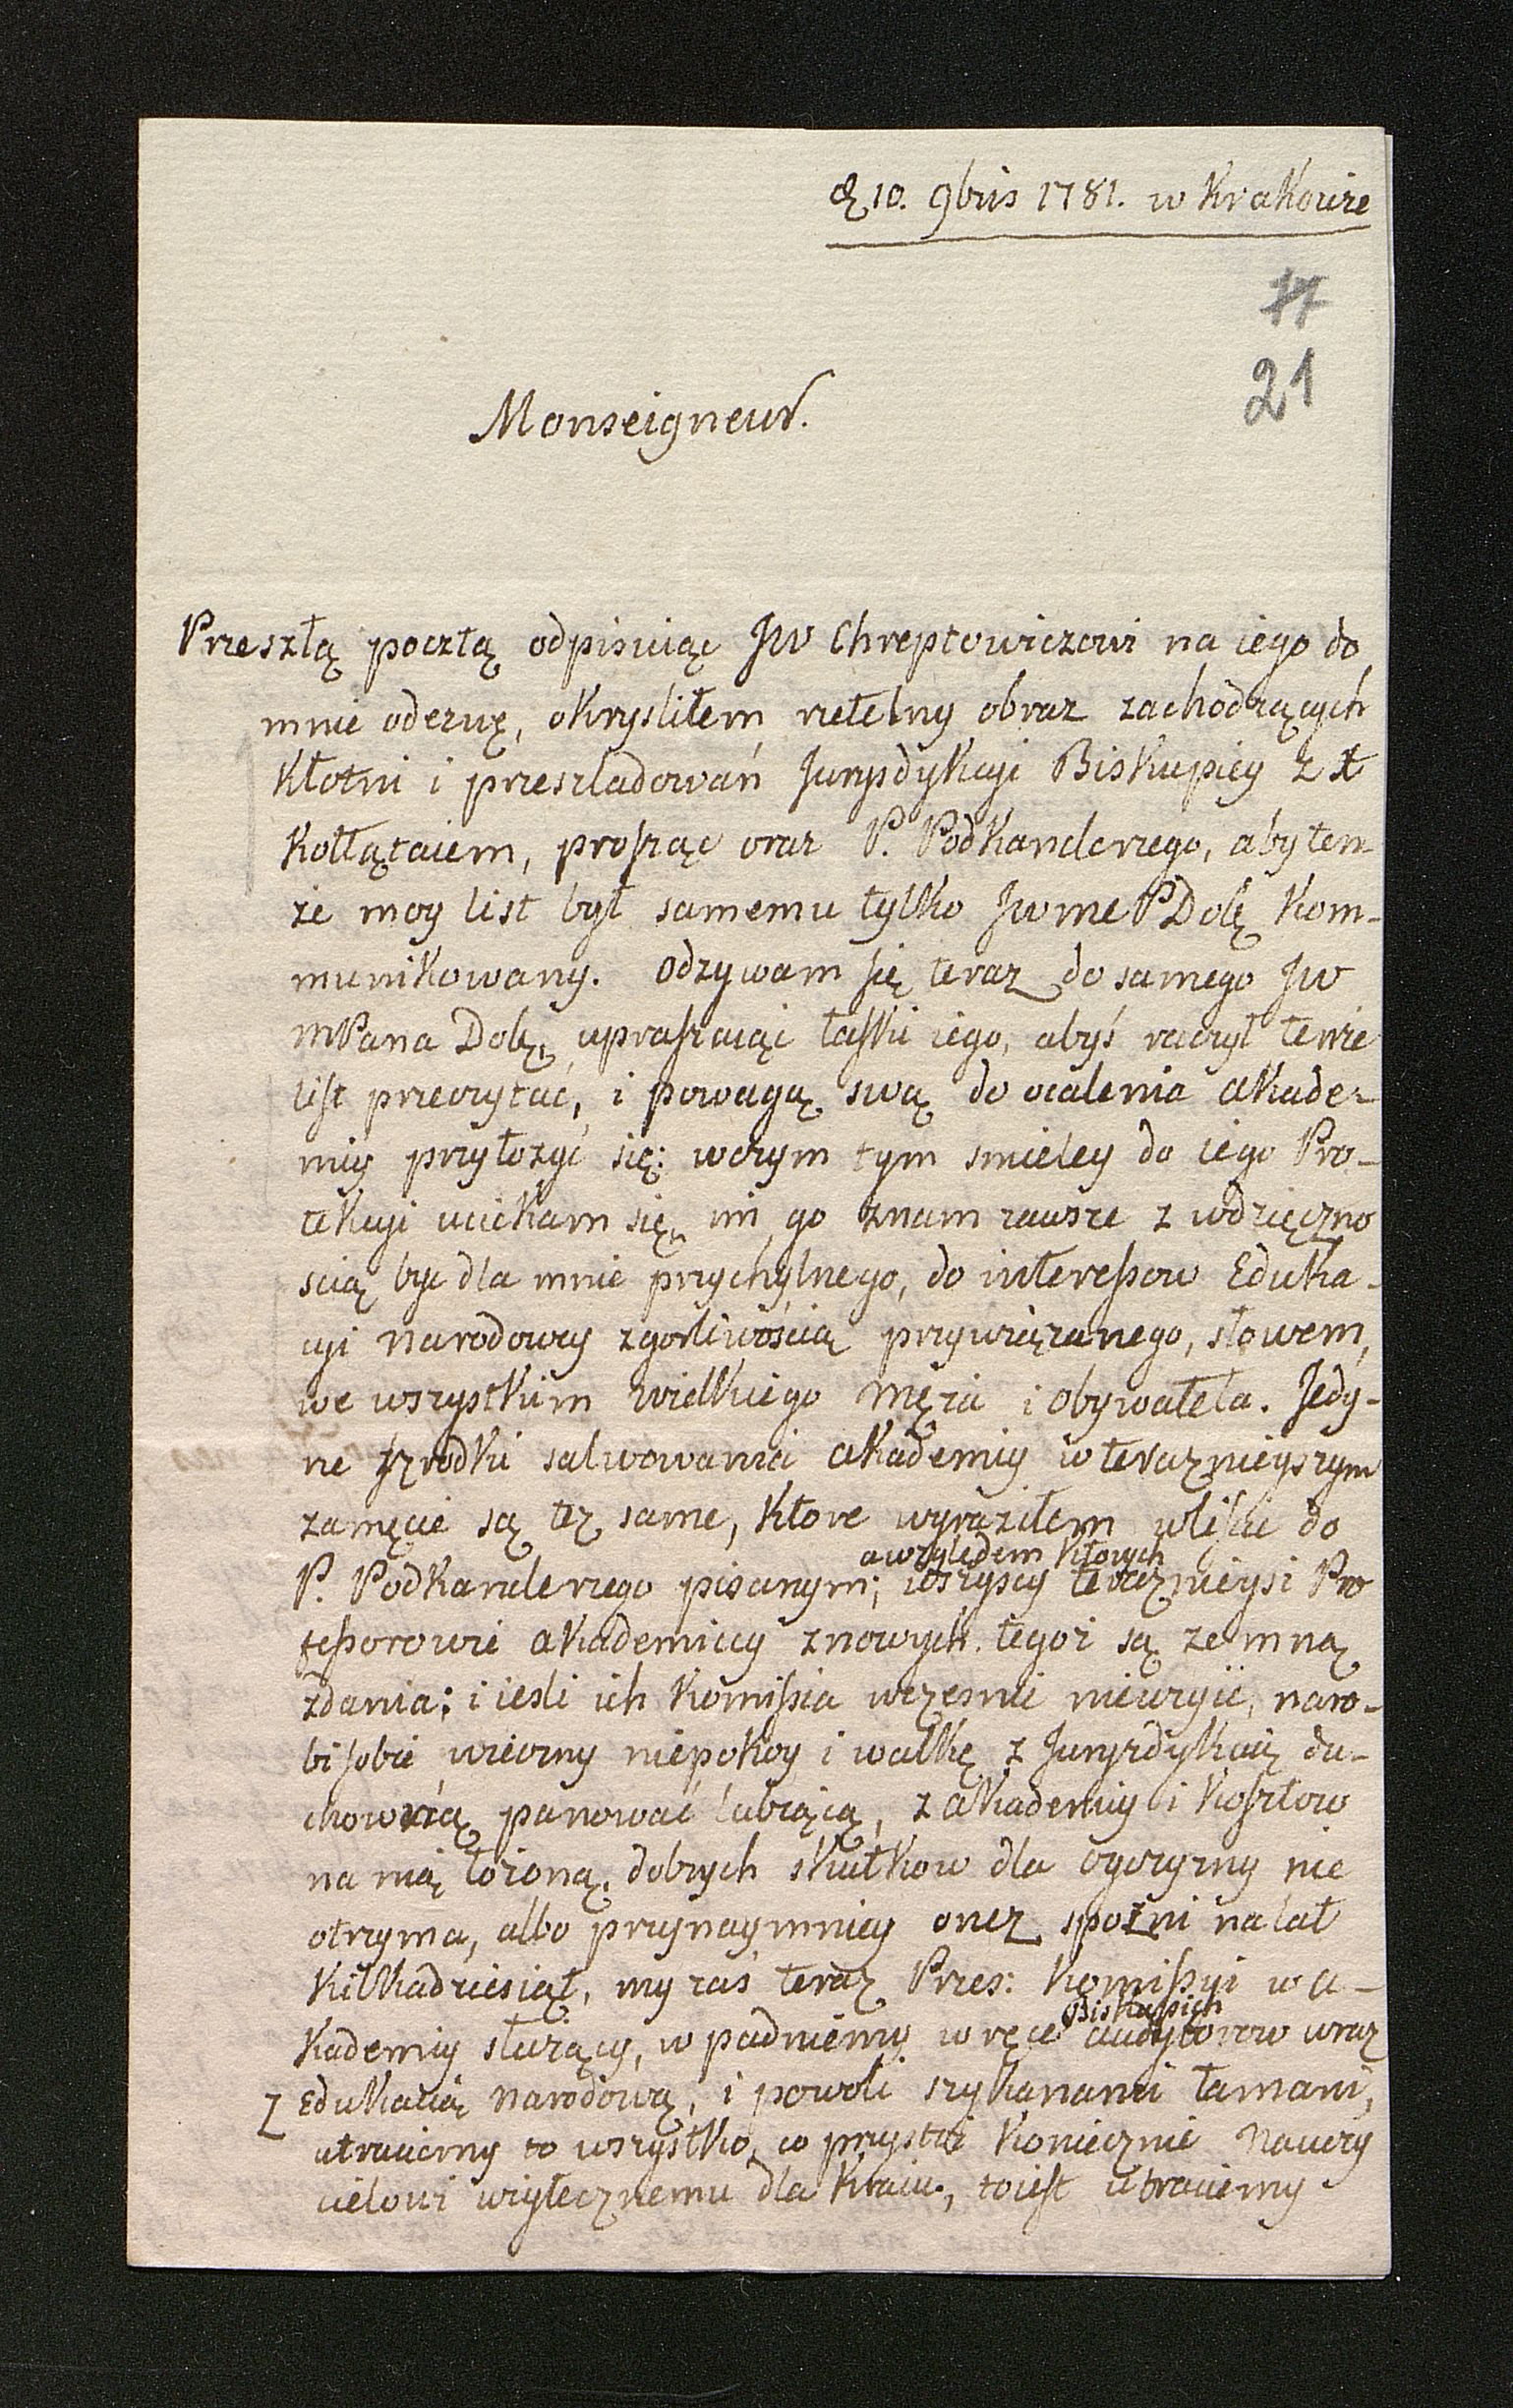 d 10. 9bris 1781. w Krakowie
17
21
Monseigneur.
Przeszłą pocztą odpisuiąc JW Chreptowiczowi na iego do
mnie odezwę, okrysliłem rzetelny obraz zachodzących
Kłotni i przesladowań Jurysdykcyi Biskupiey z X
Kołłątaiem, prosząc oraz P. Podkanclerzego, aby ten-
że moy list był samemu tylko JWmePDolę kom-
munikowany. Odzywam się teraz do samego JW
MPana Dolę, upraszaiąc łaski iego, abyś raczył tenże
list przeczytać, i powagą swą do ocalenia Akade-
miy przyłozyć się: wczym tym smieley do iego Pro-
tekcyi uciekam się, im go znam zawsze z wdzięczno
scią byc dla mnie przychylnego, do interessow Eduka-
cyi Narodowey zgorliwością przywiązanego, słowem,
we wszystkim wielkiego Męża i Obywatela. Jedy-
ne szrodki salwowania Akademiy w teraznieyszym
zamęcie są tez same, ktore wyraziłem wliscie do
P. Podkanclerzego pisanym; a względem ktorych wszyscy teraznieysi Pro
fessorowie Akademiccy znowych tegoż są ze mną
zdania; i iesli ich Komissia wczesnie nieuzyie, naro-
bi sobie wieczny niepokoy i walkę z Juryzdykcią du-
chowną panować lubiącą, z Akademiy i kosztow
na nią łożoną, dobrych skutkow dla oyczyzny nie
otrzyma, albo przynaymniey onez spozni na lat
kilkadziesiąt, my zaś teraz Prześ: Komissyi w A-
kademiy służący, wpadniemy w ręce Biskupich audytorow wraz
z Edukacią Narodową, i powoli szykanami łamani,
utraciemy to wszystko, co przystoi koniecznie Nauczy
cielowi użytecznemu dla Kraiu, toiest utraciemy